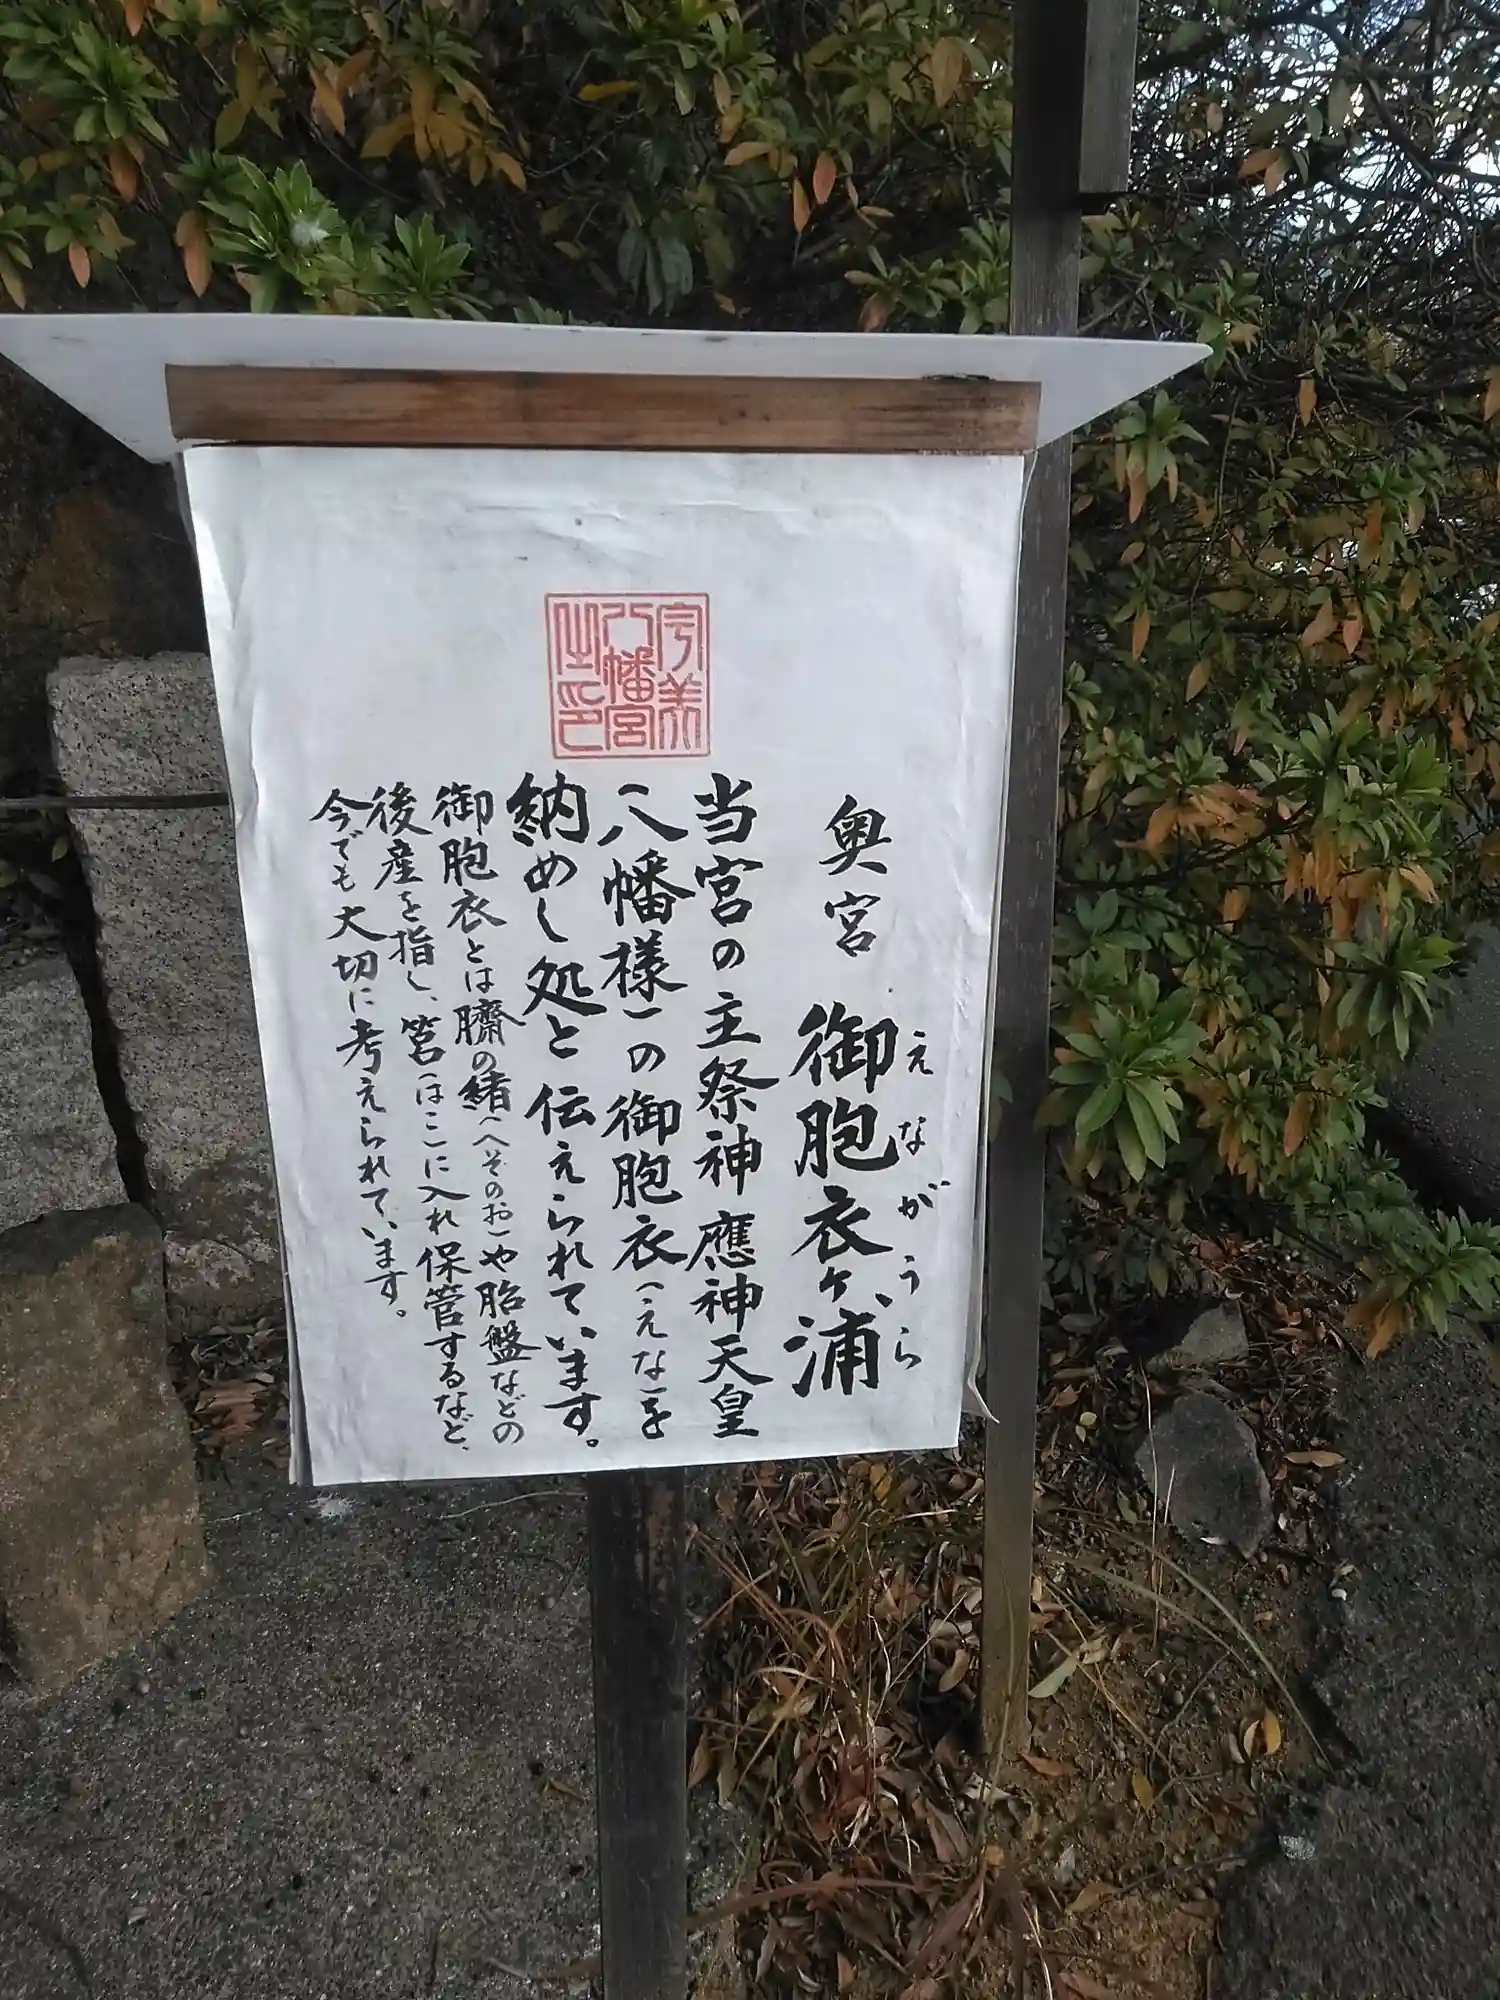 宇美
八幡宮
之印
奥宮 御胞衣ヶ浦
えながうら
当宮の主祭神 應神天皇
(八幡様)の御胞衣(えな)を
納めし処と伝えられています。
御胞衣とは臍の緒(へそのお)や胎盤などの
後産を指し、筥(はこ)に入れ保管するなど、
今でも大切に考えられています。